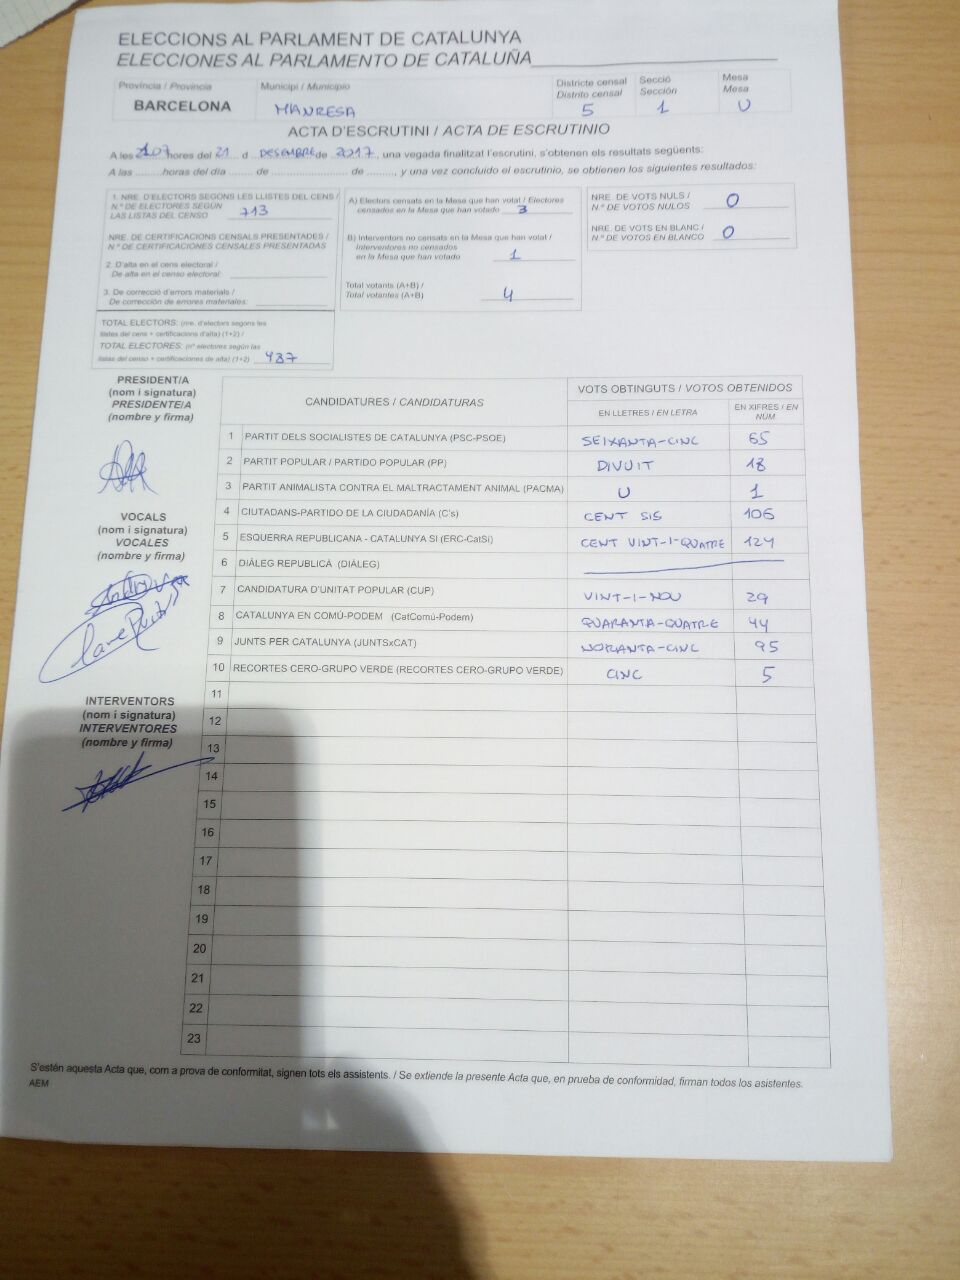 ELECCIONS AL PARLAMENT DE CATALUNYA
ELECCIONES AL PARLAMENTO DE CATALUÑA
Província / Provincia Municipi / Municipio Districte censal Secció Mesa
Distrito censal Sección Mesa
BARCELONA MANRESA 5 1 U
ACTA D'ESCRUTINI / ACTA DE ESCRUTINIO
A les hores del 21 d DESEMBRE de 2017, una vegada finalitzat l'escrutini, s'obtenen els resultats següents:
A las ......... horas del día ...... de ........................ de ........, y una vez concluido el escrutinio, se obtienen los siguientes resultados:
1. NRE. D'ELECTORS SEGONS LES LLISTES DEL CENS /
N.º DE ELECTORES SEGÚN
LAS LISTAS DEL CENSO 713
NRE. DE CERTIFICACIONS CENSALS PRESENTADES /
N.º DE CERTIFICACIONES CENSALES PRESENTADAS
2. D'alta en el cens electoral /
De alta en el censo electoral:
3. De correcció d'errors materials /
De corrección de errores materiales:
TOTAL ELECTORS: (nre. d'electors segons les
llistes del cens + certificacions d'alta) (1+2) /
TOTAL ELECTORES: (nº electores según las
listas del censo + certificaciones de alta) (1+2) 487
A) Electors censats en la Mesa que han votat / Electores
censados en la Mesa que han votado 3
B) Interventors no censats en la Mesa que han votat /
Interventores no censados
en la Mesa que han votado 1
Total votants (A+B) /
Total votantes (A+B) 4
NRE. DE VOTS NULS /
N.º DE VOTOS NULOS 0
NRE. DE VOTS EN BLANC /
N.º DE VOTOS EN BLANCO 0
PRESIDENT/A
(nom i signatura)
PRESIDENTE/A
(nombre y firma)
VOCALS
(nom i signatura)
VOCALES
(nombre y firma)
INTERVENTORS
(nom i signatura)
INTERVENTORES
(nombre y firma)
CANDIDATURES / CANDIDATURAS VOTS OBTINGUTS / VOTOS OBTENIDOS
EN LLETRES / EN LETRA EN XIFRES / EN NÚM
1 PARTIT DELS SOCIALISTES DE CATALUNYA (PSC-PSOE) SEIXANTA-CINC 65
2 PARTIT POPULAR / PARTIDO POPULAR (PP) DIVUIT 18
3 PARTIT ANIMALISTA CONTRA EL MALTRACTAMENT ANIMAL (PACMA) U 1
4 CIUTADANS-PARTIDO DE LA CIUDADANÍA (C's) CENT SIS 106
5 ESQUERRA REPUBLICANA - CATALUNYA SI (ERC-CatSí) CENT VINT-I-QUATRE 124
6 DIÀLEG REPUBLICÀ (DIÀLEG)
7 CANDIDATURA D'UNITAT POPULAR (CUP) VINT-I-NOU 29
8 CATALUNYA EN COMÚ-PODEM (CatComú-Podem) QUARANTA-QUATRE 44
9 JUNTS PER CATALUNYA (JUNTSxCAT) NORANTA-CINC 95
10 RECORTES CERO-GRUPO VERDE (RECORTES CERO-GRUPO VERDE) CINC 5
11
12
13
14
15
16
17
18
19
20
21
22
23
S'estén aquesta Acta que, com a prova de conformitat, signen tots els assistents. / Se extiende la presente Acta que, en prueba de conformidad, firman todos los asistentes.
AEM